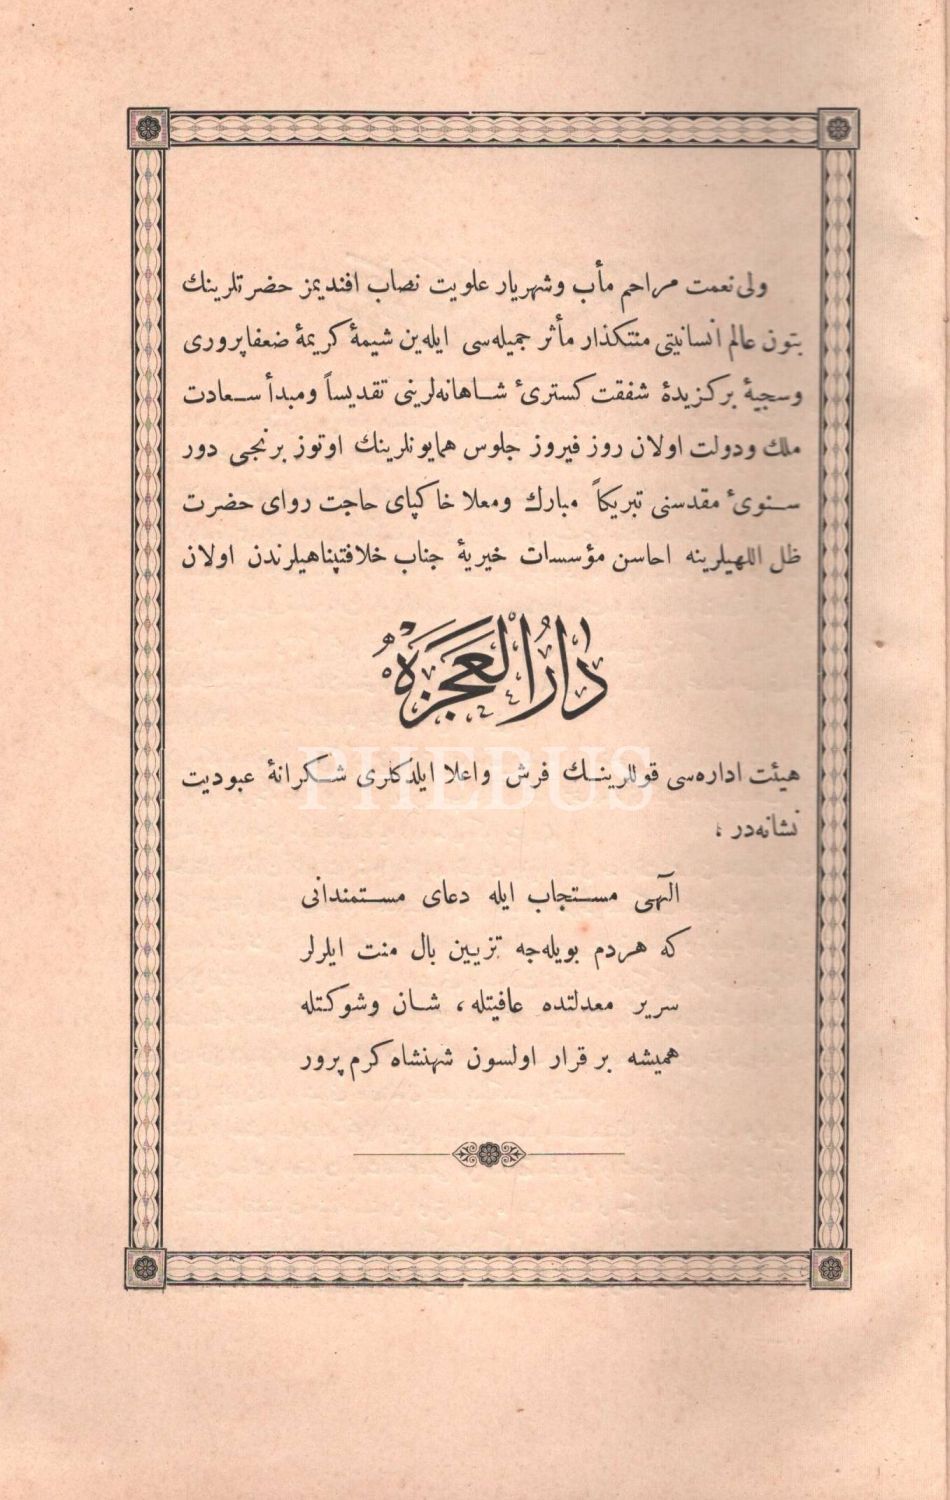 ولی نعمت مراحم مأب وشهریار علویت نصاب افندیمز حضرتلرینك
بتون عالم انسانیتی منتكذار مأثر جمیله‌سی ایله‌ین شیمهٔ كریمهٔ ضعفاپروری
وسجیهٔ بركزیدهٔ شفقت كستریٔ شاهانه‌لرینی تقدیساً ومبدأ سعادت
ملك ودولت اولان روز فیروز جلوس همایونلرینك اوتوز برنجی دور
سنویٔ مقدسنی تبریكاً مبارك ومعلا خاكپای حاجت روای حضرت
ظل اللهیلرینه احاسن مؤسسات خیریهٔ جناب خلافتپناهیلرندن اولان
دَارُالْعَجَزَه
PHEBUS
هیئت اداره‌سی قوللرینك فرش واعلا ایلدكلری شكرانهٔ عبودیت
نشانه‌در ،
الٓهی مستجاب ایله دعای مستمندانی
كه هردم بویله‌جه تزیین بال منت ایلرلر
سریر معدلتده عافیتله، شان وشوكتله
همیشه برقرار اولسون شهنشاه كرم پرور